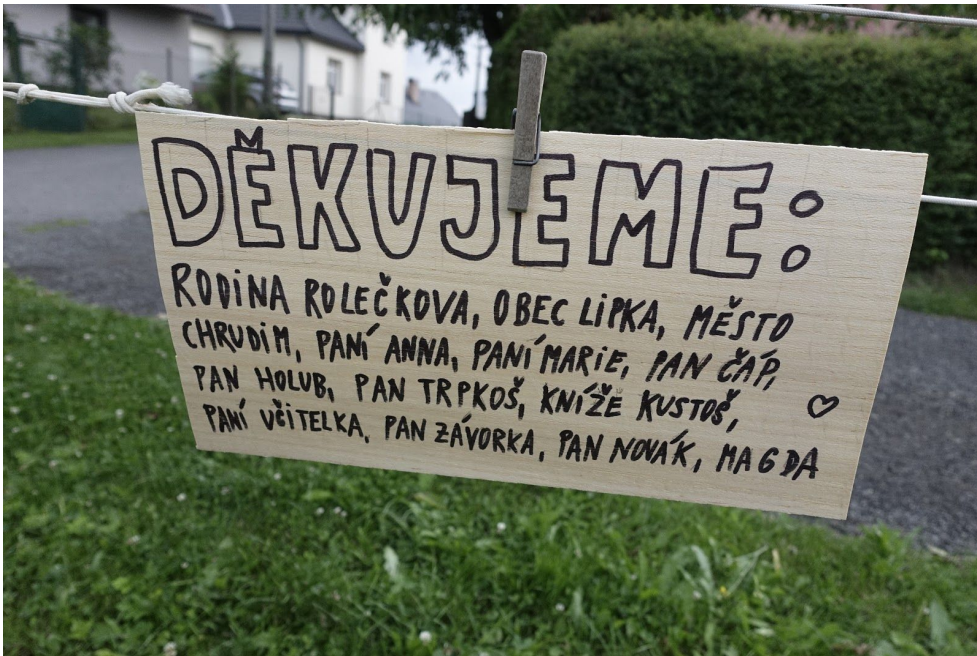 DĚKUJEME:
RODINA ROLEČKOVA, OBEC LIPKA, MĚSTO
CHRUDIM, PANÍ ANNA, PANÍ MARIE, PAN ČÁP,
PAN HOLUB, PAN TRPKOŠ, KNÍŽE KUSTOŠ,
PANÍ UČITELKA, PAN ZÁVORKA, PAN NOVÁK, MAGDA